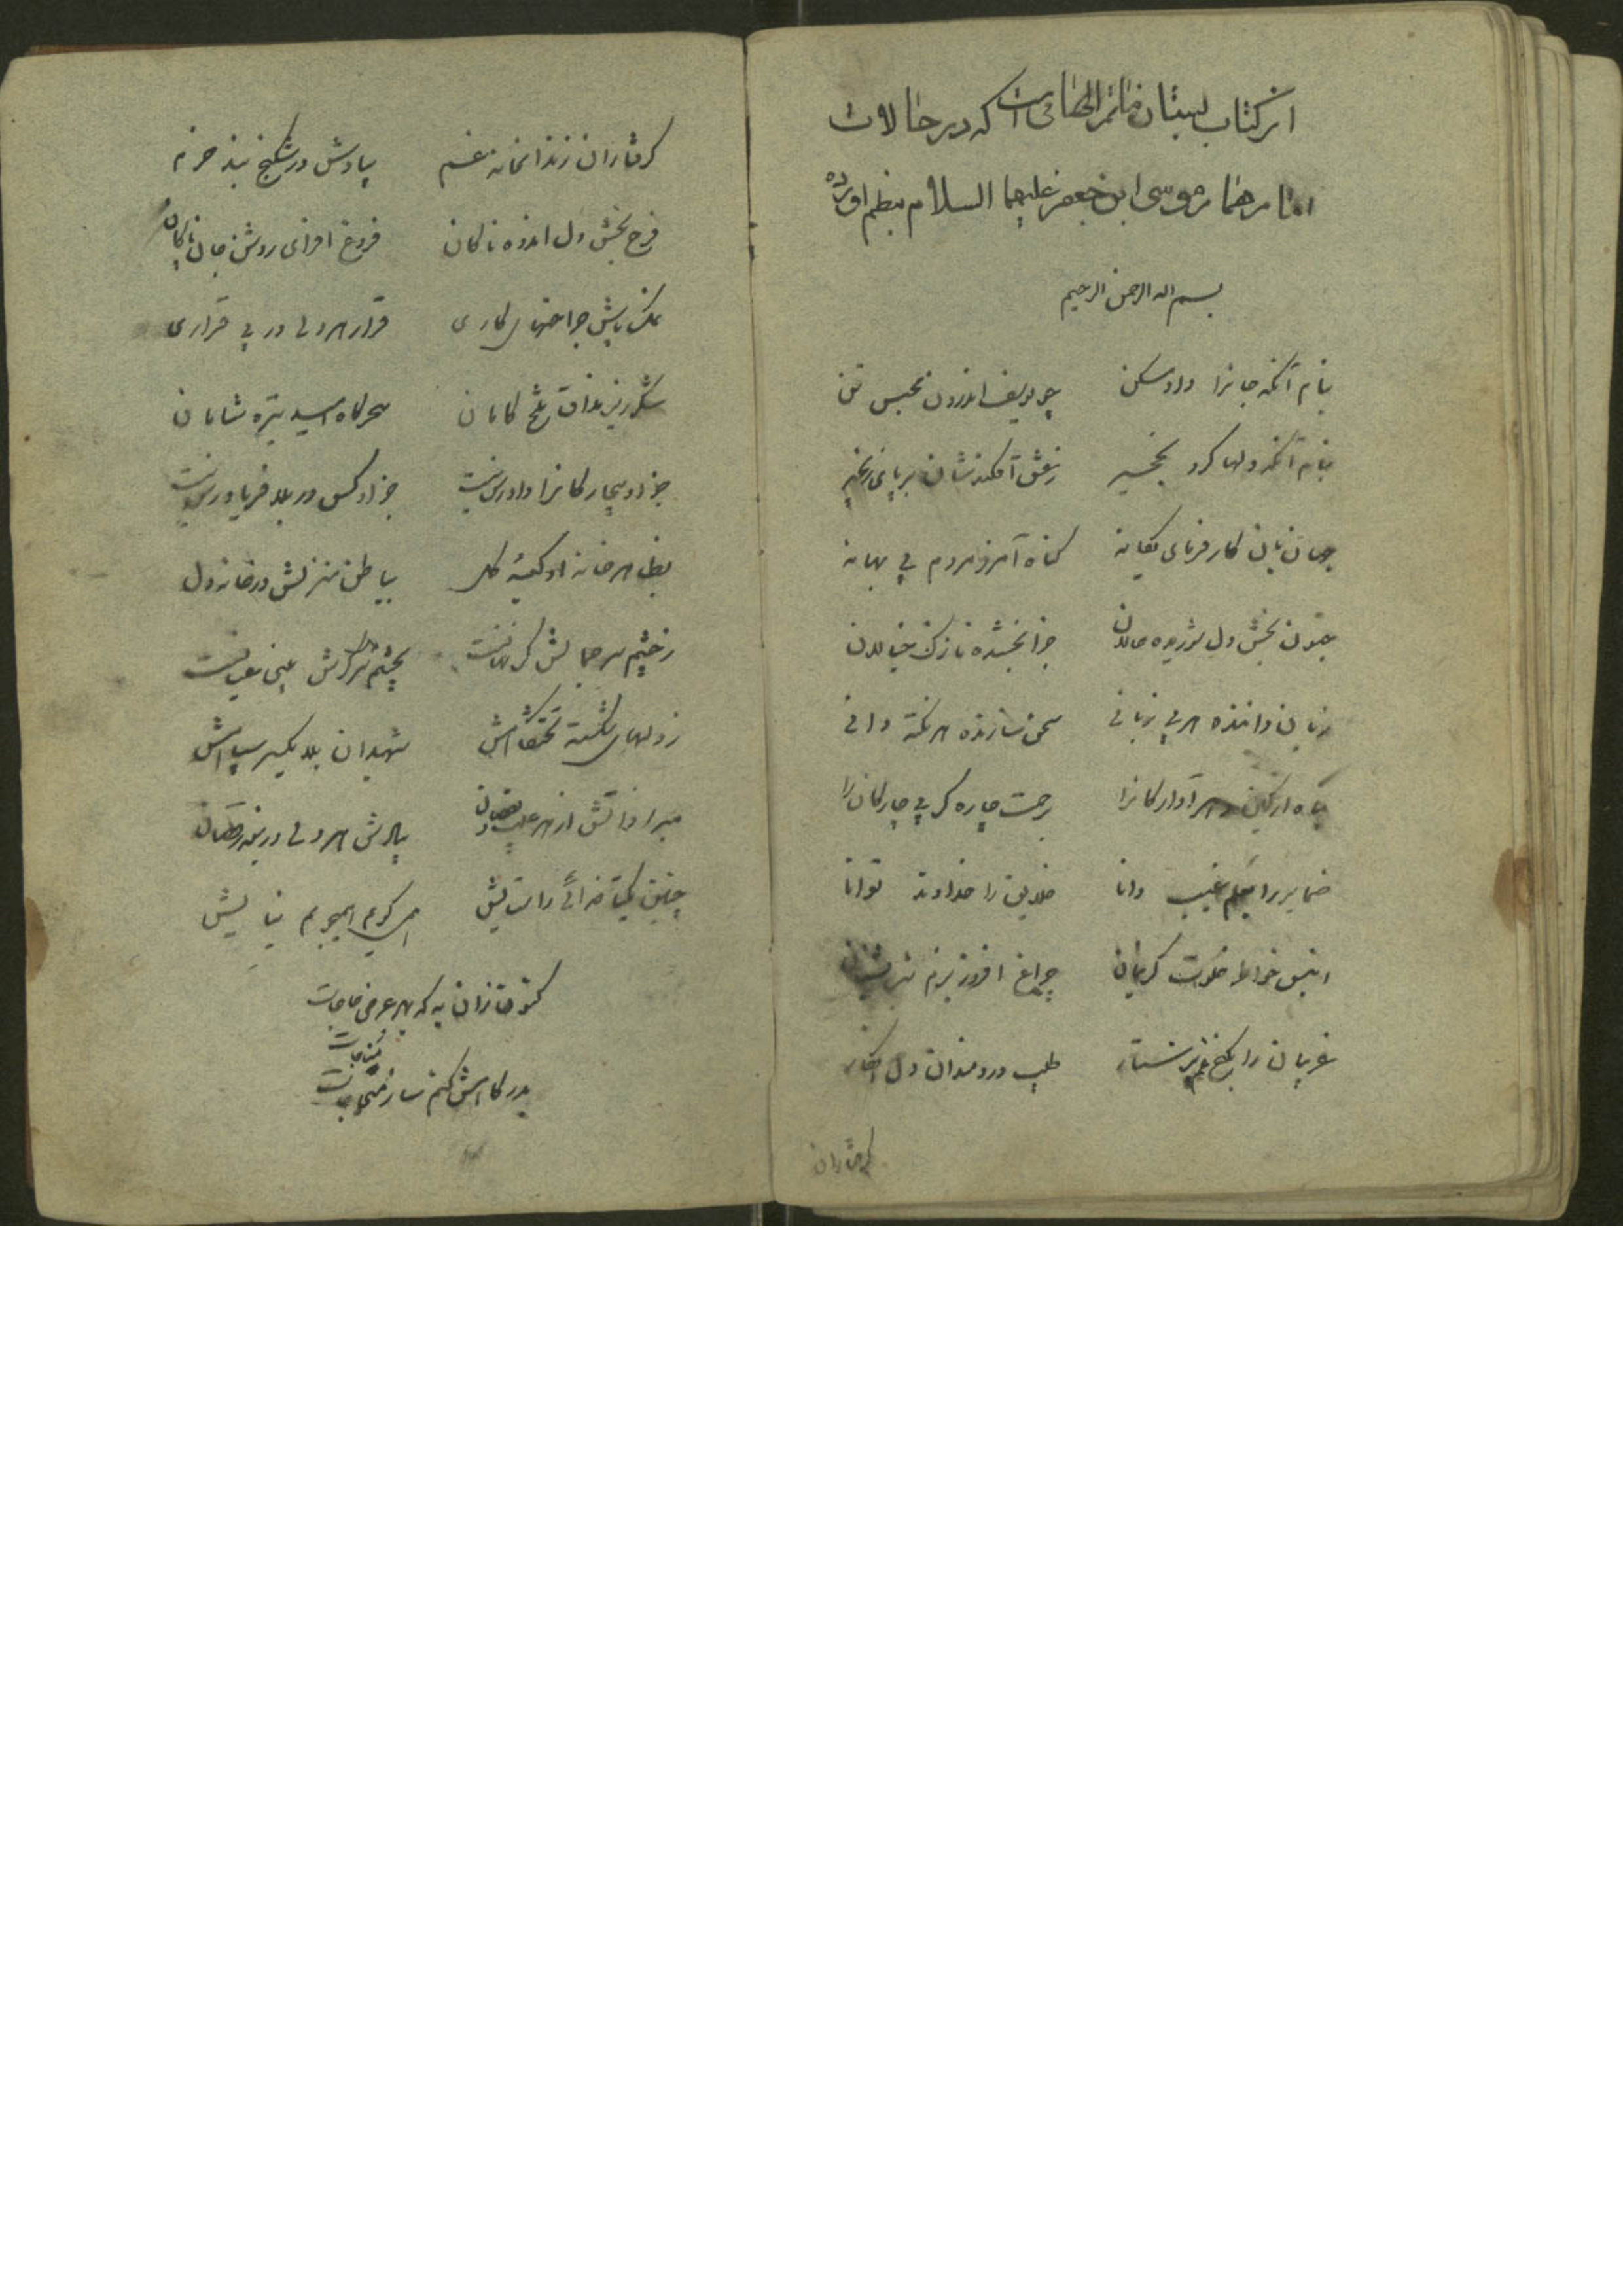 این کتاب بستان ماتم است که در حالات
امام همام موسی ابن جعفر علیهما السلام بنظم آورده
بسم اله الرحمن الرحیم
بنام آنکه جانرا داد مسکن چو یوسف اندرون محبس تن
بنام آنکه دلها کرد نخجیر زعشق افکندشان بر پای زنجیر
جهان بان کار فرمای یکانه کناه آمرز مردم بی بهانه
جنون بخش دل شوریده حالان جزا بخشنده نازک خیالان
زبان داننده هر بی زبانی سخن سازنده هر نکته دانی
پناه آوارکانرا برحمت چاره کر بی چارکان را
ضمایر را بعلم غیب دانا خلایق را خداوند توانا
انیس خلوت کریمان چراغ افروز بزم شب نشینان
غریبان را بکنج غم پرستار طبیب دردمندان دل افکار
کرفتاران
کرفتاران زندانخانه غم بیادش در شکنج بند خرم
فرح بخش دل اندوه ناکان فروغ افزای روشن جان پاکان
نمک پاش جراحتهای کاری قرار هر دلی در بی قراری
شکرریز مذاق تلخ کامان سحرکاه امید تیره شامان
جز او بیچارکانرا داوری نیست جز او کس در بلا فریادرس نیست
بظاهر خانه او کعبهٔ کل بباطن منزلش در خانه دل
زچشم سر جمالش کر نهانست بچشم سر عیانست
زدلهای شکسته تختکاهش شهیدان بلا یکسر سپاهش
مبرا ذاتش از هر عیب و نقصان بیادش هر دلی در سینه رقصان
چنین یکتا خدائی را ستایش همی کویم همی جویم نیایش
کنون زان به که بهر عرض حاجات
بدرکاهش کنم ساز مناجات
مناجات